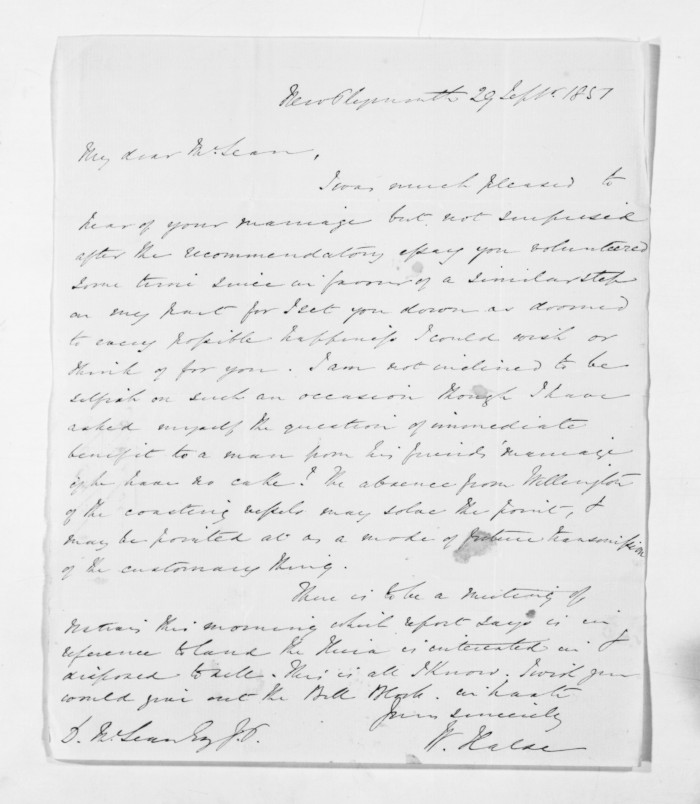 New Plymouth 29 Septr. 1851
My dear McLean,
I was much pleased to
hear of your marriage but not surprised
after the recommendatory essay you volunteered
some time since in favour of a similar step
on my part for I set you down as doomed
to every possible happiness I could wish or
think of for you. I am not inclined to be
selfish on such an occasion though I have
asked myself the question of immediate
benefit to a man from his friends' marriage
if he have no cake? The absence from Wellington
of the coasting vessels may solve the point, &
may be pointed at as a mode of future transmission
of the customary thing.
There is to be a meeting of
natives this morning which report says is in
reference to land the is interested in &
disposed to sell. This is all I know. I wish you
would give out the Bell Block. in haste
Yours sincerely
D. McLean Esq J.P. W. Halse